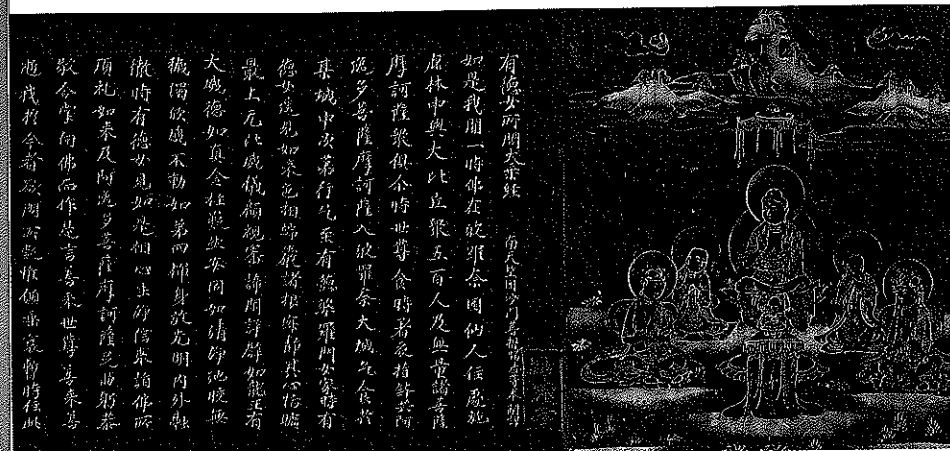 有德女所問大乘經 南天竺國沙門菩提流志奉制譯
如是我聞一時佛在波羅奈國仙人住處施
鹿林中與大比丘眾五百人及無量諸菩薩
摩訶薩眾俱尒時世尊食時著衣持鉢與阿
逸多菩薩摩訶薩入波羅奈大城乞食於
其城中次第行乞至有德婆羅門女家時有
德女遙見如來色相端嚴諸根寂靜其心恬曠
最上无比威儀顧視審諦閑詳譬如龍王有
大威德如真金柱巍巍安固如清淨池皎無
穢濁欲處不動如第四禪身放光明內外融
徹時有德女見如是相心生淨信來詣佛所
頂礼如來及阿逸多菩薩摩訶薩足曲躬恭
敬合掌向佛而作是言善來世尊善來善
逝我於今者欲問所疑惟願垂哀暫時住此